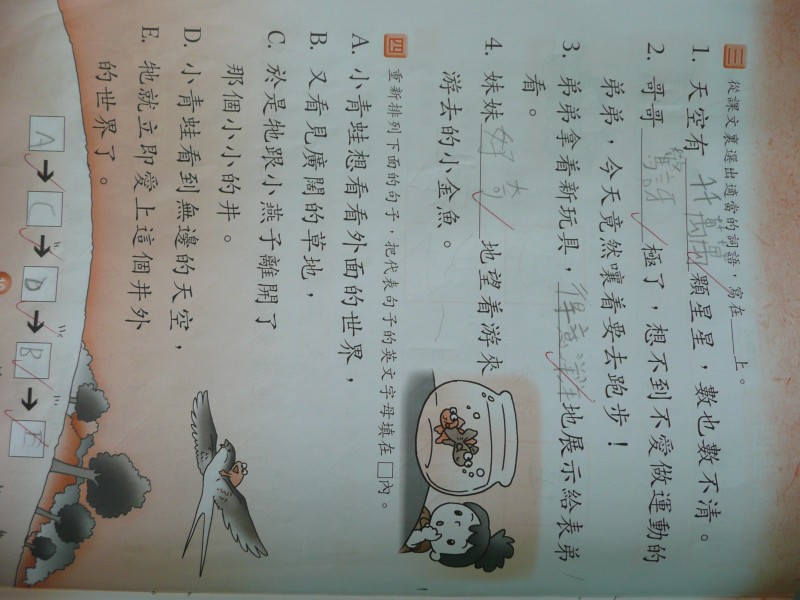 三 從課文裏選出適當的詞語,寫在___上。
1. 天空有 千萬 顆星星,數也數不清。
2. 哥哥 驚訝 極了,想不到不愛做運動的
弟弟,今天竟然嚷着要去跑步!
3. 弟弟拿着新玩具, 得意洋洋 地展示給表弟
看。
4. 妹妹 好奇 地望着游來
游去的小金魚。
四 重新排列下面的句子,把代表句子的英文字母填在□內。
A. 小青蛙想看看外面的世界,
B. 又看見廣闊的草地,
C. 於是牠跟小燕子離開了
那個小小的井。
D. 小青蛙看到無邊的天空,
E. 牠就立即愛上這個井外
的世界了。
A → C → D → B → E